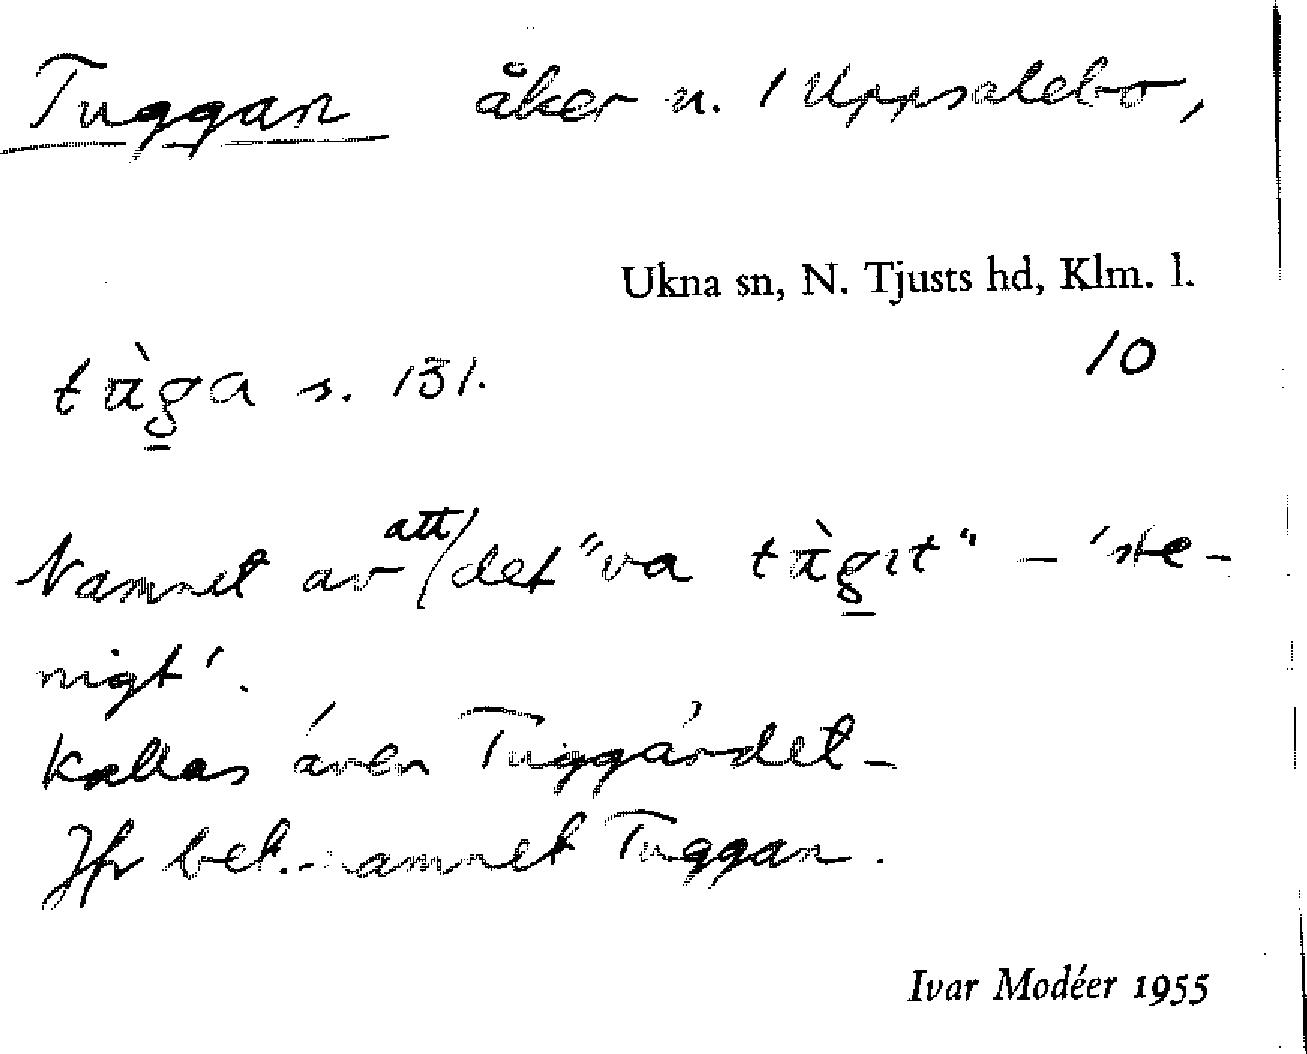 Tuggan åker n. / Uppsalebo,
Ukna sn, N. Tjusts hd, Klm. l.
10
s. 131.
Namnet av att det "va – 'ste-
nigt'.
Kallas även Tuggärdet –
Jfr bek.-namnet Tuggan.
Ivar Modéer 1955